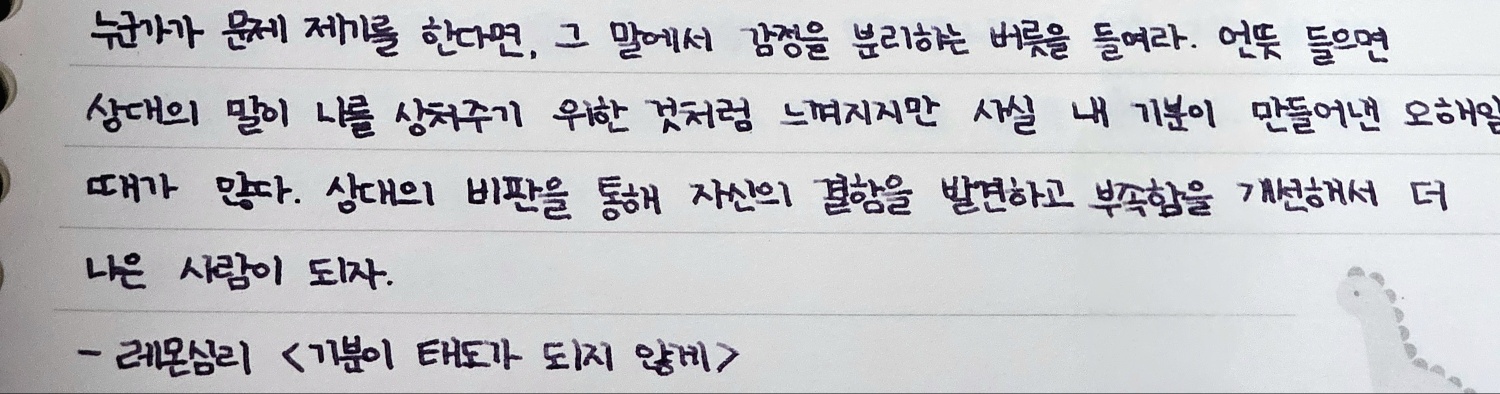 누군가가 문제 제기를 한다면, 그 말에서 감정을 분리하는 버릇을 들여라. 언뜻 들으면
상대의 말이 나를 상처주기 위한 것처럼 느껴지지만 사실 내 기분이 만들어낸 오해일
때가 많다. 상대의 비판을 통해 자신의 결함을 발견하고 부족함을 개선해서 더
나은 사람이 되자.
- 레몬심리 <기분이 태도가 되지 않게>